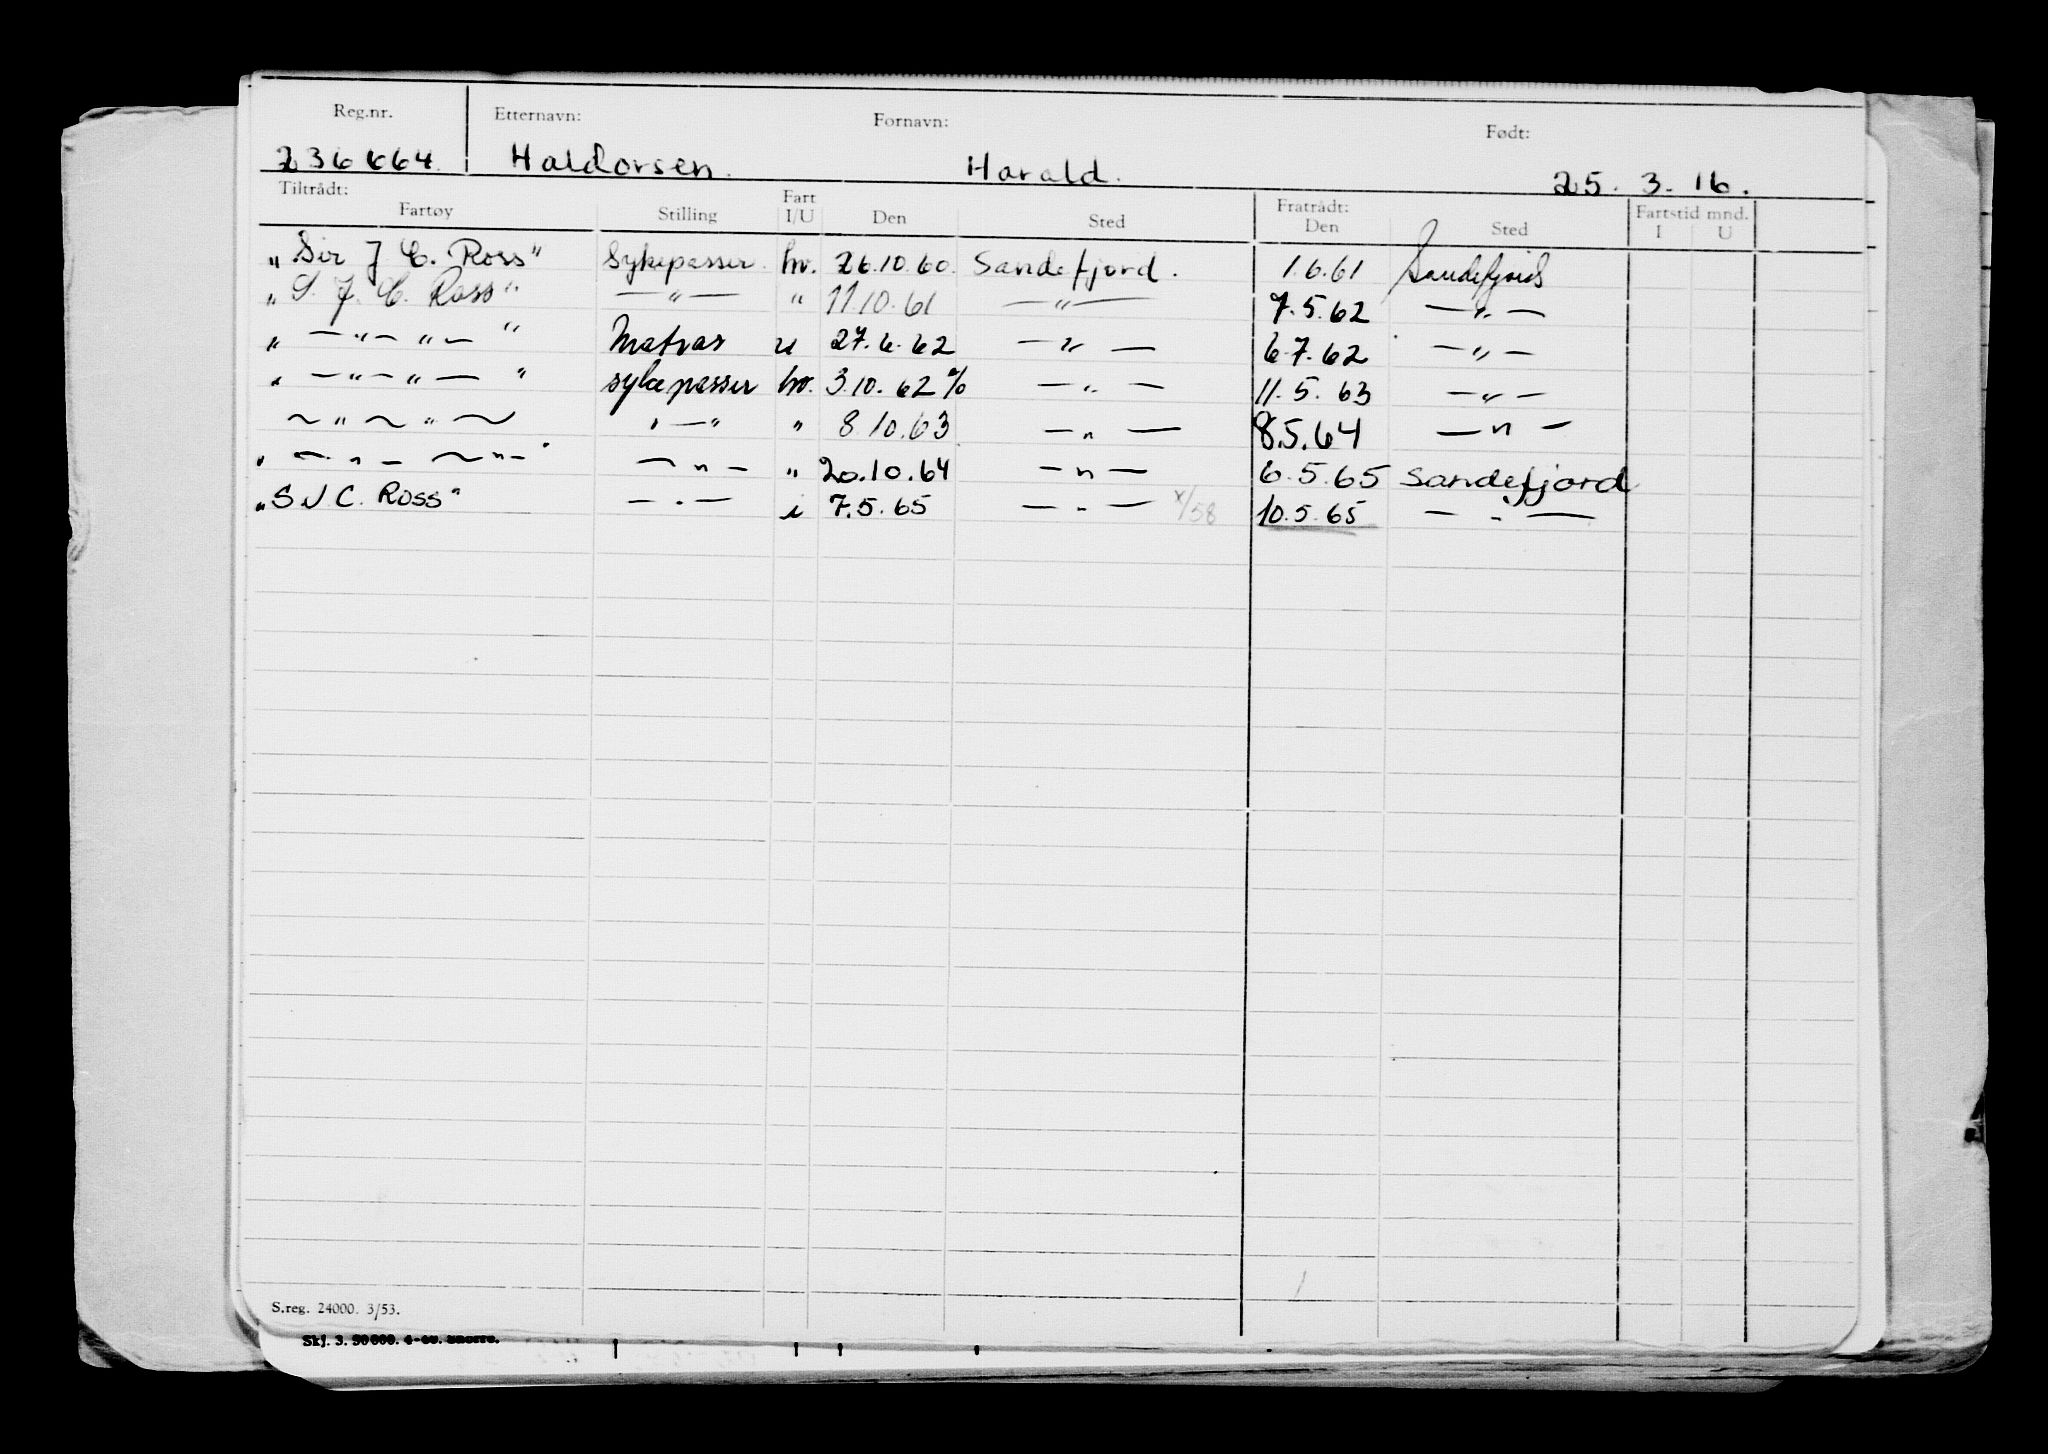 Reg.nr. Etternavn: Fornavn: Født:
236664. Haldorsen. Harald. 25. 3. 16.
Tiltrådt: Fart Fratrådt: Fartstid mnd.
Fartøy Stilling I/U Den Sted Den Sted I U
"Sir J C. Ross" Sykepasser. hv. 26.10.60. Sandefjord. 1.6.61 Sandefjord
"S. J. C. Ross" —"— " 11.10.61 —"— 7.5.62 —"—
" —"—"— " Matros u 27.6.62 —"— 6.7.62 —"—
" —"—"— " sykepasser hv. 3.10.62 % —"— 11.5.63 —"—
~"~"~ "—" " 8.10.63 —"— 8.5.64 —"—
" —"— ~"—" —"— " 20.10.64 —"— 6.5.65 Sandefjord
"S J C. Ross" —"— i 7.5.65 —"— x/58 10.5.65 —"—
S.reg. 24000. 3/53.
Skj. 3. 50000.